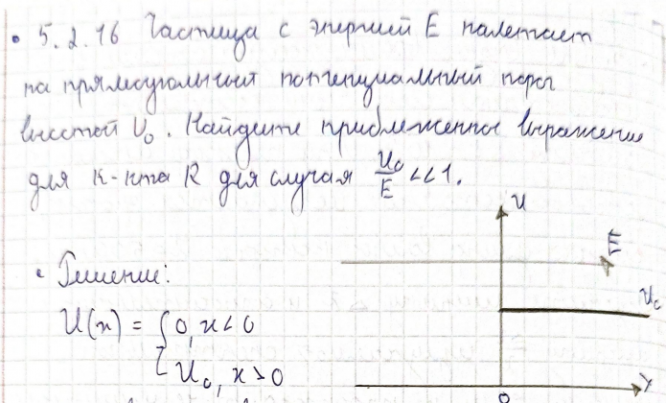 • 5.2.16 Частица с энергией E налетает
на прямоугольный потенциальный порог
высотой U₀. Найдите приближенное выражение
для к-нта R для случая U₀/E <<1.
U
E
• Решение:
U₀
U(x) = { 0, x<0
U₀, x>0
x
0